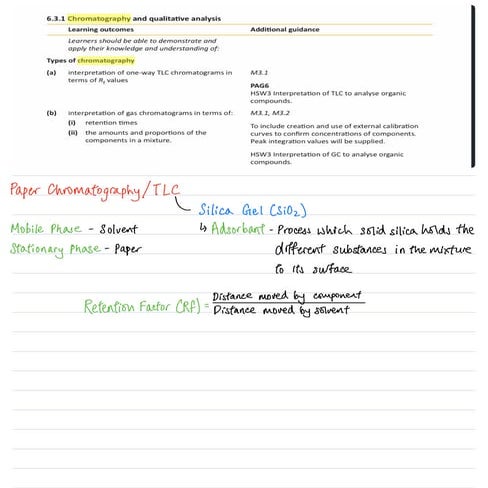 6.3.1 Chromatography and qualitative analysis
Learning outcomes
Additional guidance
Learners should be able to demonstrate and
apply their knowledge and understanding of:
Types of chromatography
(a) interpretation of one-way TLC chromatograms in
terms of Rf values
M3.1
PAG6
HSW3 Interpretation of TLC to analyse organic
compounds.
(b) interpretation of gas chromatograms in terms of:
(i) retention times
(ii) the amounts and proportions of the
components in a mixture.
M3.1, M3.2
To include creation and use of external calibration
curves to confirm concentrations of components.
Peak integration values will be supplied.
HSW3 Interpretation of GC to analyse organic
compounds.
Paper Chromatography/TLC
Silica Gel (SiO2)
Mobile Phase - Solvent
Stationary Phase - Paper
↳ Adsorbant - Process which solid silica holds the
different substances in the mixture
to its surface
Retention Factor (RF) = Distance moved by component
Distance moved by solvent